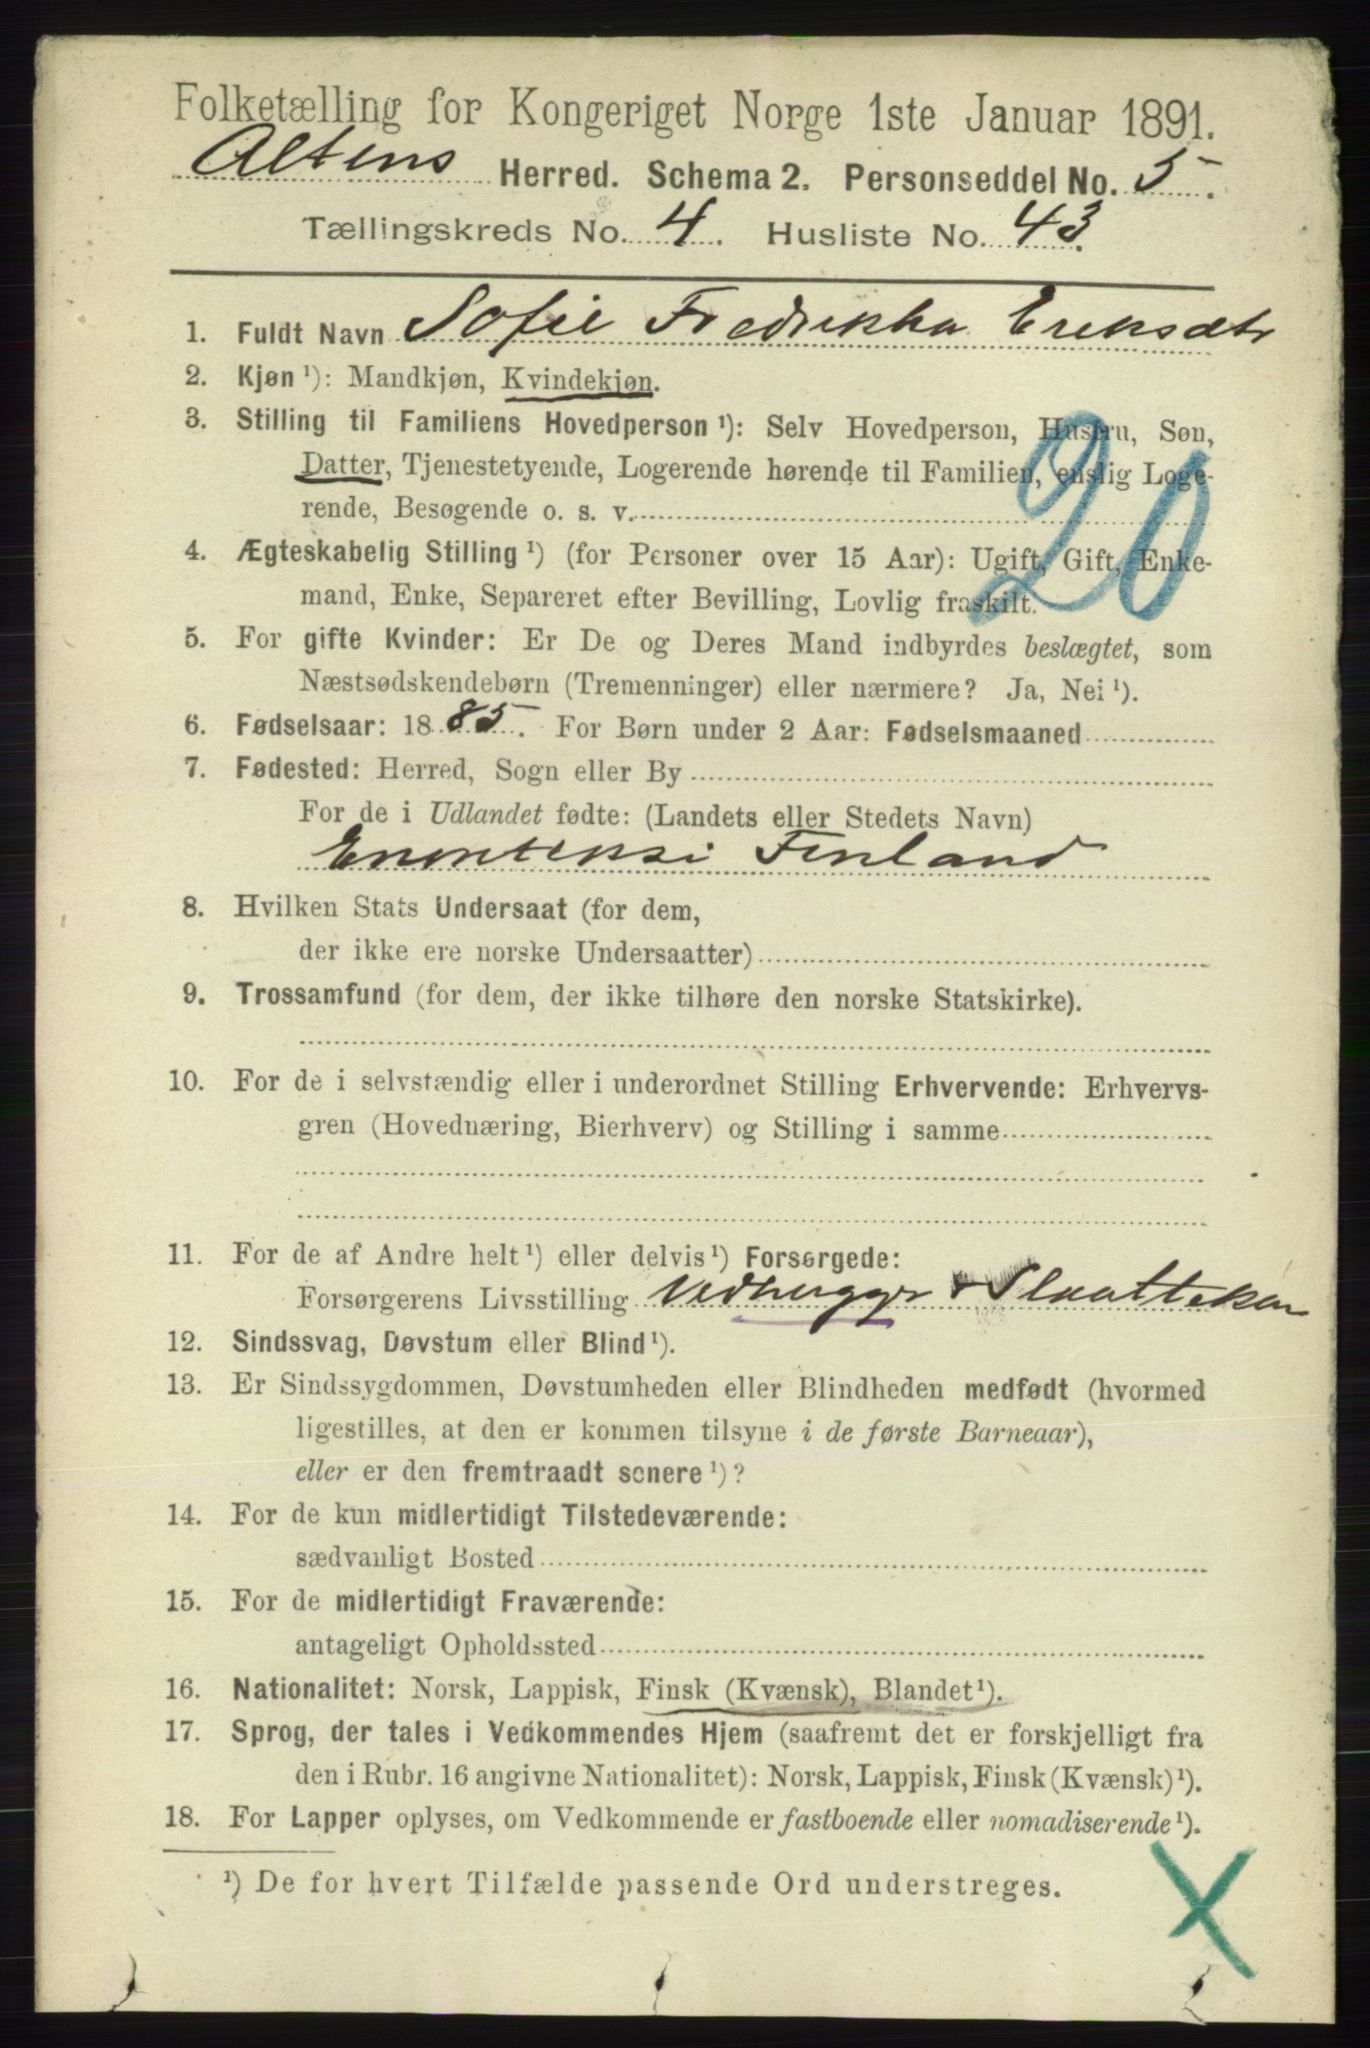 Folketælling for Kongeriget Norge 1ste Januar 1891.
Altens Herred. Schema 2. Personseddel No. 5.
Tællingskreds No. 4. Husliste No. 43.
1. Fuldt Navn Sofie Fredrikka Eriksdtr
2. Kjøn ¹): Mandkjøn, Kvindekjøn.
3. Stilling til Familiens Hovedperson ¹): Selv Hovedperson, Hustru, Søn,
Datter, Tjenestetyende, Logerende hørende til Familien, enslig Loge-
rende, Besøgende o. s. v.
20
4. Ægteskabelig Stilling ¹) (for Personer over 15 Aar): Ugift, Gift, Enke-
mand, Enke, Separeret efter Bevilling, Lovlig fraskilt.
5. For gifte Kvinder: Er De og Deres Mand indbyrdes beslægtet, som
Næstsødskendebørn (Tremenninger) eller nærmere? Ja, Nei ¹).
6. Fødselsaar: 1885. For Børn under 2 Aar: Fødselsmaaned
7. Fødested: Herred, Sogn eller By
For de i Udlandet fødte: (Landets eller Stedets Navn)
Enonteksi Finland
8. Hvilken Stats Undersaat (for dem,
der ikke ere norske Undersaatter)
9. Trossamfund (for dem, der ikke tilhøre den norske Statskirke).
10. For de i selvstændig eller i underordnet Stilling Erhvervende: Erhvervs-
gren (Hovednæring, Bierhverv) og Stilling i samme
11. For de af Andre helt ¹) eller delvis ¹) Forsørgede:
Forsørgerens Livsstilling Vedhugger & Slaattekar
12. Sindssvag, Døvstum eller Blind ¹).
13. Er Sindssygdommen, Døvstumheden eller Blindheden medfødt (hvormed
ligestilles, at den er kommen tilsyne i de første Barneaar),
eller er den fremtraadt senere ¹)?
14. For de kun midlertidigt Tilstedeværende:
sædvanligt Bosted
15. For de midlertidigt Fraværende:
antageligt Opholdssted
16. Nationalitet: Norsk, Lappisk, Finsk (Kvænsk), Blandet ¹).
17. Sprog, der tales i Vedkommendes Hjem (saafremt det er forskjelligt fra
den i Rubr. 16 angivne Nationalitet): Norsk, Lappisk, Finsk (Kvænsk) ¹).
18. For Lapper oplyses, om Vedkommende er fastboende eller nomadiserende ¹).
¹) De for hvert Tilfælde passende Ord understreges.
X